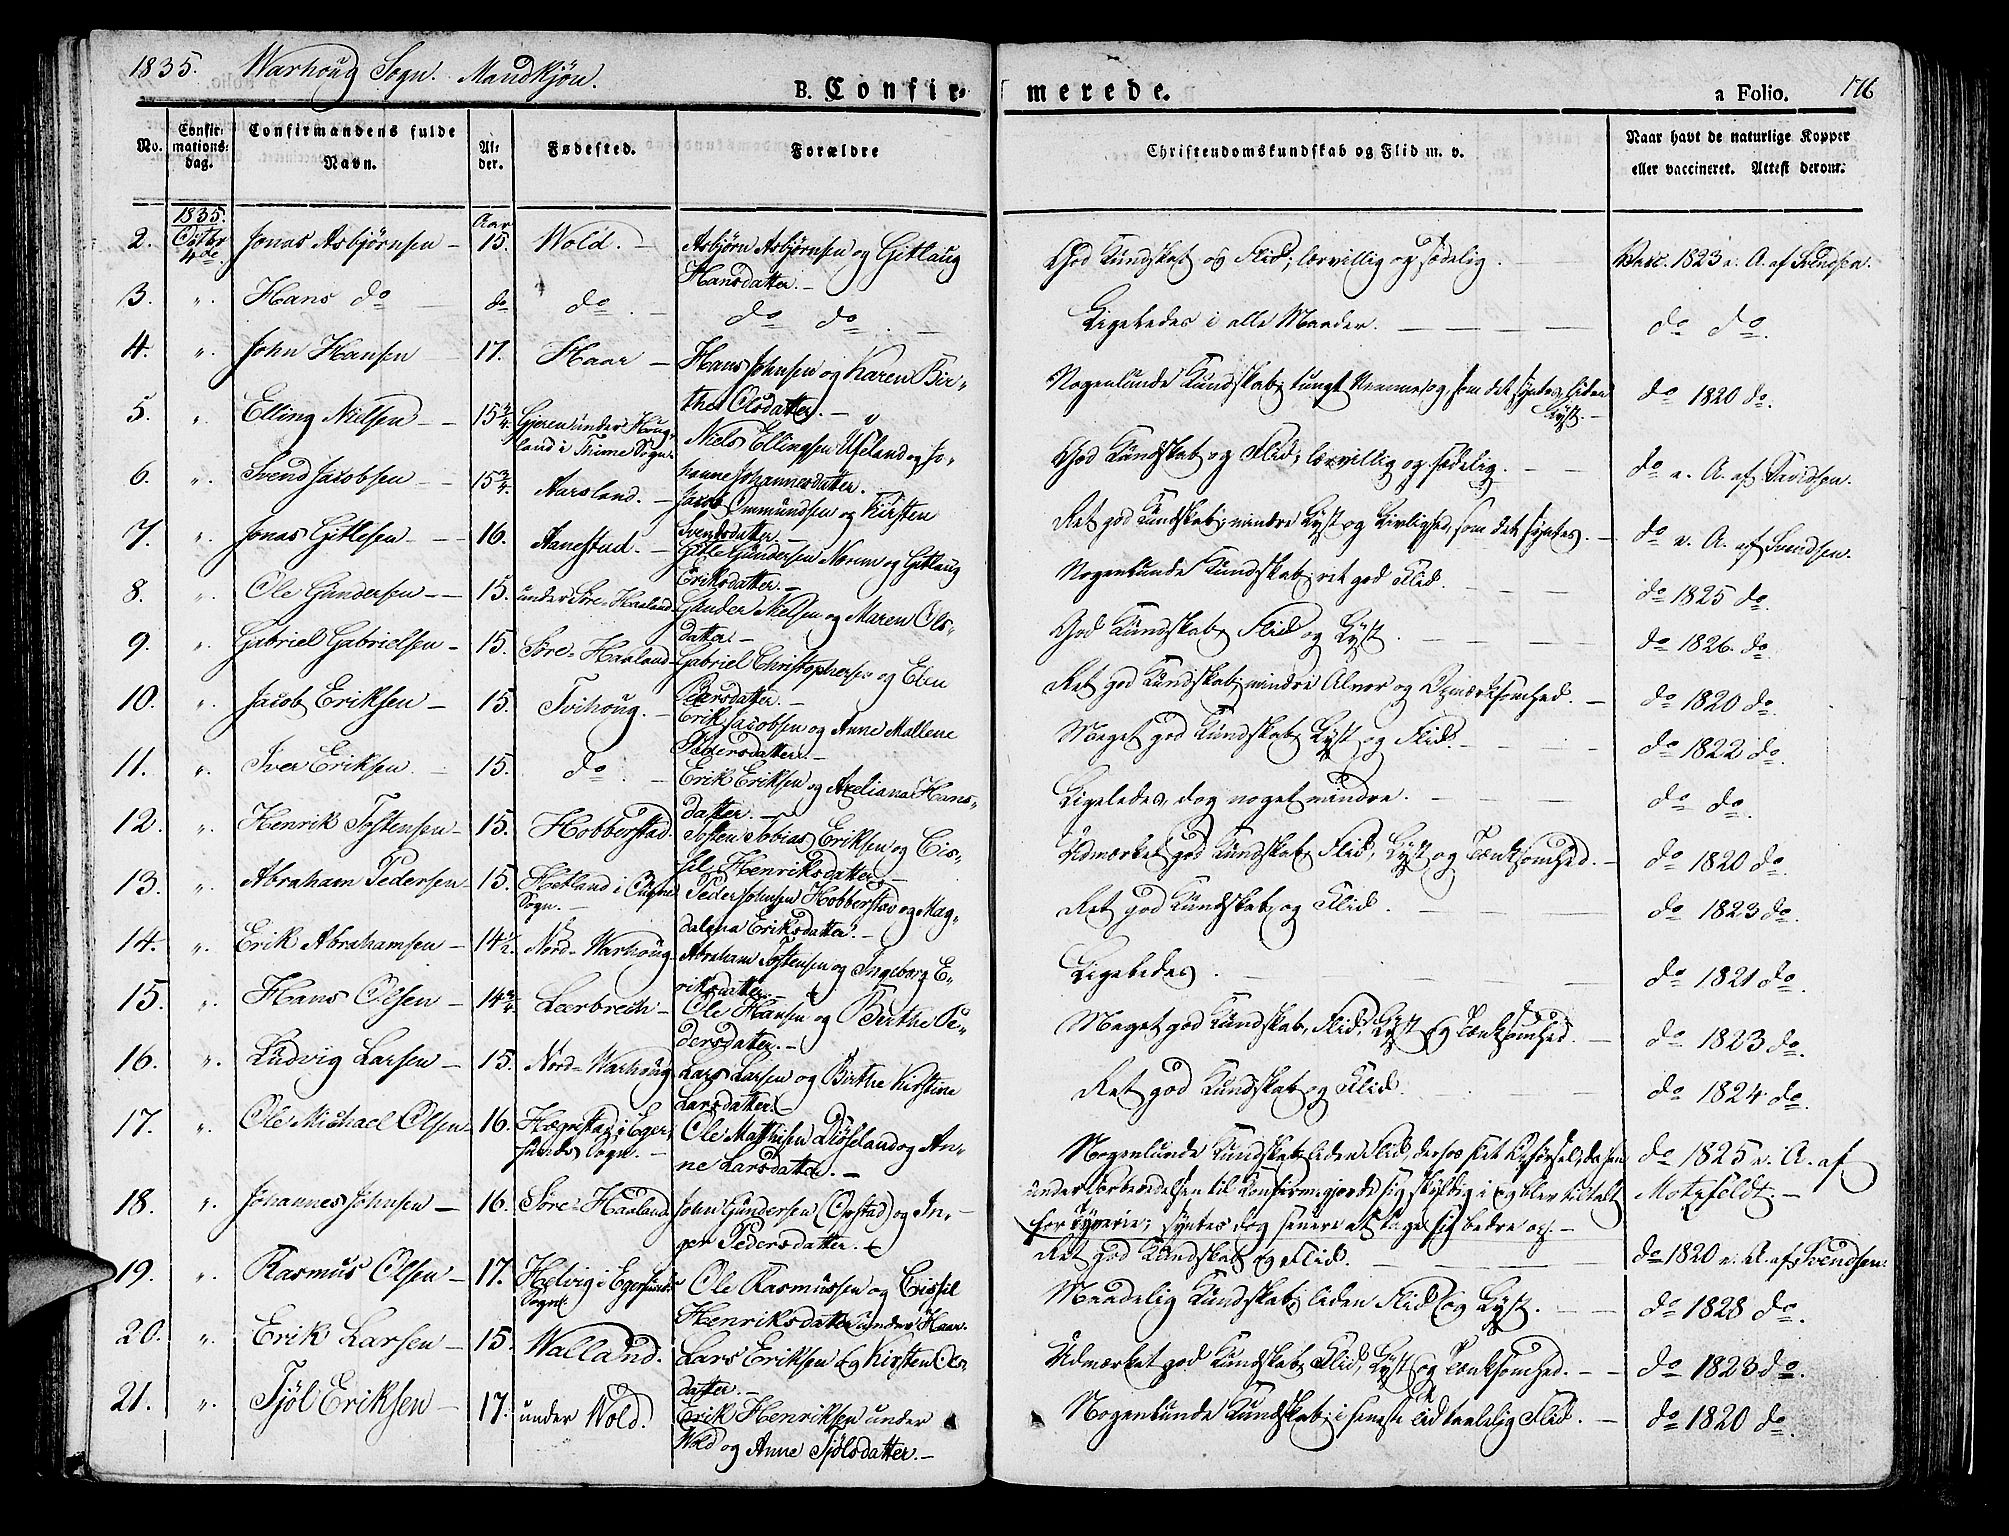 1835. Warhoug Sogn. Mandkjøn.
B. Confirmerede.
a Folio. 176
No.
Confirmations-dag.
Confirmandens fulde Navn.
Alder.
Fødested.
Forældre
Christendomskundskab og Flid m. v.
Naar havt de naturlige Kopper eller vaccineret. Attest derom.
1835.
Aar
2. Octbr 4de Jonas Asbjørnsen – 15. Wold. – Asbjørn Asbjørnsen og Gitlaug Hansdatter. – God Kundskab og Flid; lærvillig og sædelig. – Vacc. 1823 e. A. af Svendsen.
3. ". Hans do do do. – do do. – Ligeledes i alle Maader. – do do.
4. ". John Hansen – 17. Haar – Hans Johnsen og Karen Birthe Olsdatter. – Nogenlunde Kundskab; tungt Nemme og, som det syntes, liden Lyst. – do 1820 do.
5. ". Elling Nielsen – 15 3/4. Gjeren under Hougland i Thime Sogn. Niels Ellingsen Useland og Johanne Johannesdatter. God Kundskab og Flid; lærvillig og sædelig. – do e. A. af Davidsen.
6. ". Svend Jacobsen – 15 3/4. Aarsland. – Jacob Ommundsen og Kirsten Svendsdatter. – Ret god Kundskab; mindre Lyst og Livlighed, som det syntes. – do e. A. af Svendsen.
7. ". Jonas Gitlesen – 16. Aanestad. – Gitle Gundersen Norem og Gitlaug Eriksdatter. – Nogenlunde Kundskab; ret god Flid. do 1825 do.
8. ". Ole Gundersen – 15. under Søre-Haaland Gunder Nielsen og Maren Olsdatter. – God Kundskab, Flid og Lyst. – do 1826. do.
9. ". Gabriel Gabrielsen – 15. Søre-Haaland Gabriel Christophersen og Elen Peersdatter. – Ret god Kundskab; mindre Alvor og Opmærksomhed. – do 1820 do.
10. ". Jacob Eriksen – 15. Tvihoug. – Erik Jacobsen og Anne Mallene Pedersdatter. – Meget god Kundskab, Lyst og Flid. – do 1822 do.
11. ". Iver Eriksen. – 15. do. – Erik Eriksen og Axeliana Hansdatter. – Ligeledes, dog noget mindre. – do do.
12. ". Henrik Tostensen – 15. Hobberstad. Tosten Tobias Eriksen og Cissil Henriksdatter. – Udmærket god Kundskab, Flid, Lyst og Tænksomhed. – do 1820 do.
13. ". Abraham Pedersen – 15. Hetland i Ougne Sogn. – Peder Johnsen Hobberstad og Magdalena Eriksdatter. – Ret god Kundskab og Flid. – do 1823 do.
14. ". Erik Abrahamsen – 14 1/2. Nord-Warhoug Abraham Tostensen og Ingeborg Eriksdatter. – Ligeledes. – do 1821 do.
15. ". Hans Olsen – 14 3/4. Lærbrech – Ole Hansen og Berthe Pedersdatter. – Meget god Kundskab, Flid, Lyst og Tænksomhed. – do 1823 do.
16. ". Ludvig Larsen – 15. Nord-Warhoug Lars Larsen og Birthe Kirstine Larsdatter. – Ret god Kundskab og Flid. – do 1824 do.
17. ". Ole Michael Olsen 16. Hægrestad i Egersunds Sogn. – Ole Mathisen Diøseland og Anne Larsdatter. – Nogenlunde Kundskab; liden Flid, dertos slet Opførsel, da han under Forberedelsen til Confirm. gjorde sig skyldig i og blev tiltalt for Tyverie; syntes dog senere at tage sig bedre op. – do 1825 e. A. af Motzfeldt. –
18. ". Johannes Johnsen – 16. Søre-Haaland John Gundersen (Opstad) og Inger Pedersdatter. – Ret god Kundskab og Flid. – do 1820 e. A. af Svendsen.
19. ". Rasmus Olsen – 17. Helvig i Egersunds Sogn. Ole Rasmussen og Cissil Henriksdatter under Haar. Maadelig Kundskab; liden Flid og Lyst. – do 1828 do.
20. ". Erik Larsen – 15. Walland. Lars Eriksen og Kirsten Olsdatter. – Udmærket god Kundskab, Flid, Lyst og Tænksomhed. – do 1823 do.
21. ". Tjøl Eriksen – 17. under Wold. Erik Henriksen under Wold og Anne Tjølsdatter. – Nogenlunde Kundskab; i seneste Tid taalelig Flid. – do 1820 do.